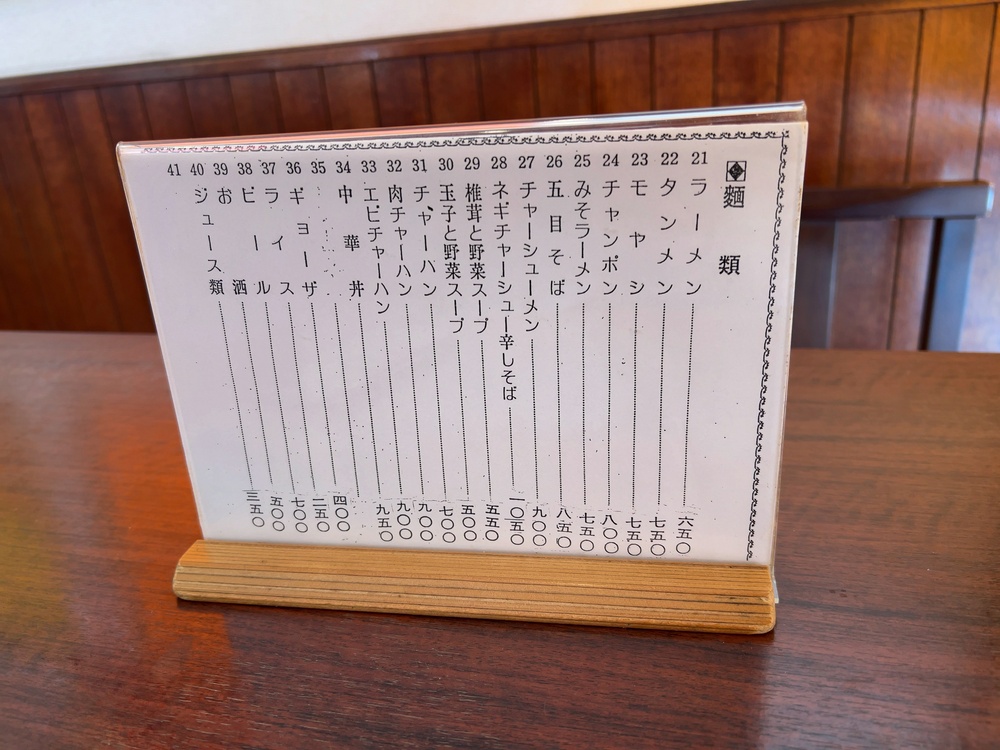 麵類
21 ラーメン 六五〇
22 タンメン 七五〇
23 モヤシ 七五〇
24 チャンポン 八〇〇
25 みそラーメン 七五〇
26 五目そば 八五〇
27 チャーシューメン 九〇〇
28 ネギチャーシュー辛しそば 一〇五〇
29 椎茸と野菜スープ 五五〇
30 玉子と野菜スープ 五〇〇
31 チャーハン 七〇〇
32 肉チャーハン 九〇〇
33 エビチャーハン 九〇〇
34 中華丼 九五〇
35
36 ギョーザ 四〇〇
37 ライス 二五〇
38 ビール 七〇〇
39 お酒 五〇〇
40 ジュース類 三五〇
41